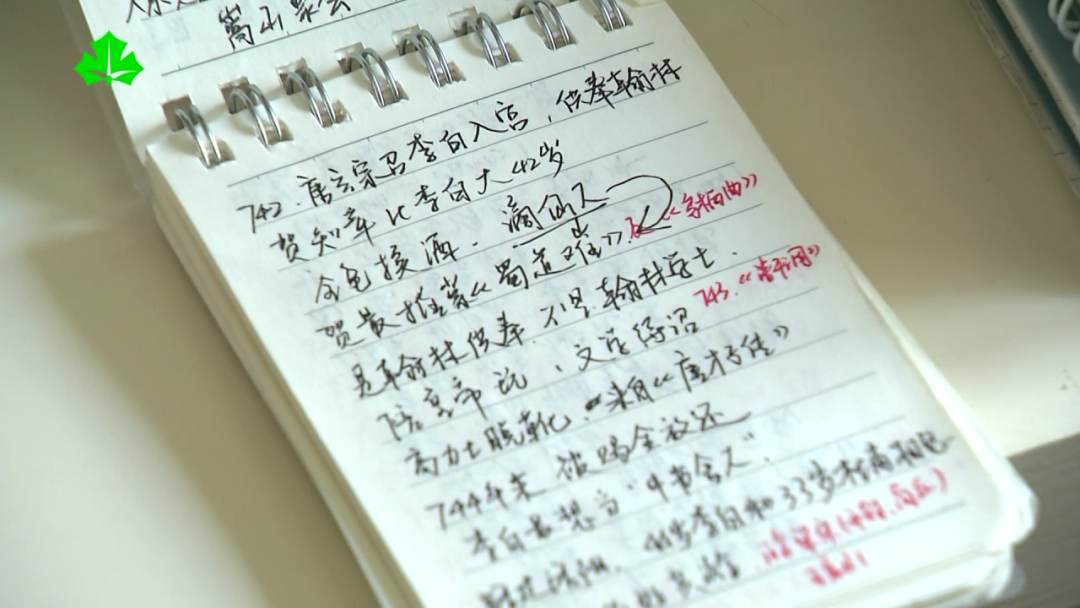 嵩山
742.唐玄宗召李白入宫，供奉翰林
贺知章比李白大42岁
金龟换酒.谪仙人
贺最推崇《蜀道难》及《乌栖曲》
是翰林供奉.不是翰林学士.
陪皇帝玩、文学待诏 743.《清平调》
高力士脱靴.来自《唐才子传》
744年末 被赐金放还
李白最想当"中书舍人".
44岁李白和33岁杜甫相见